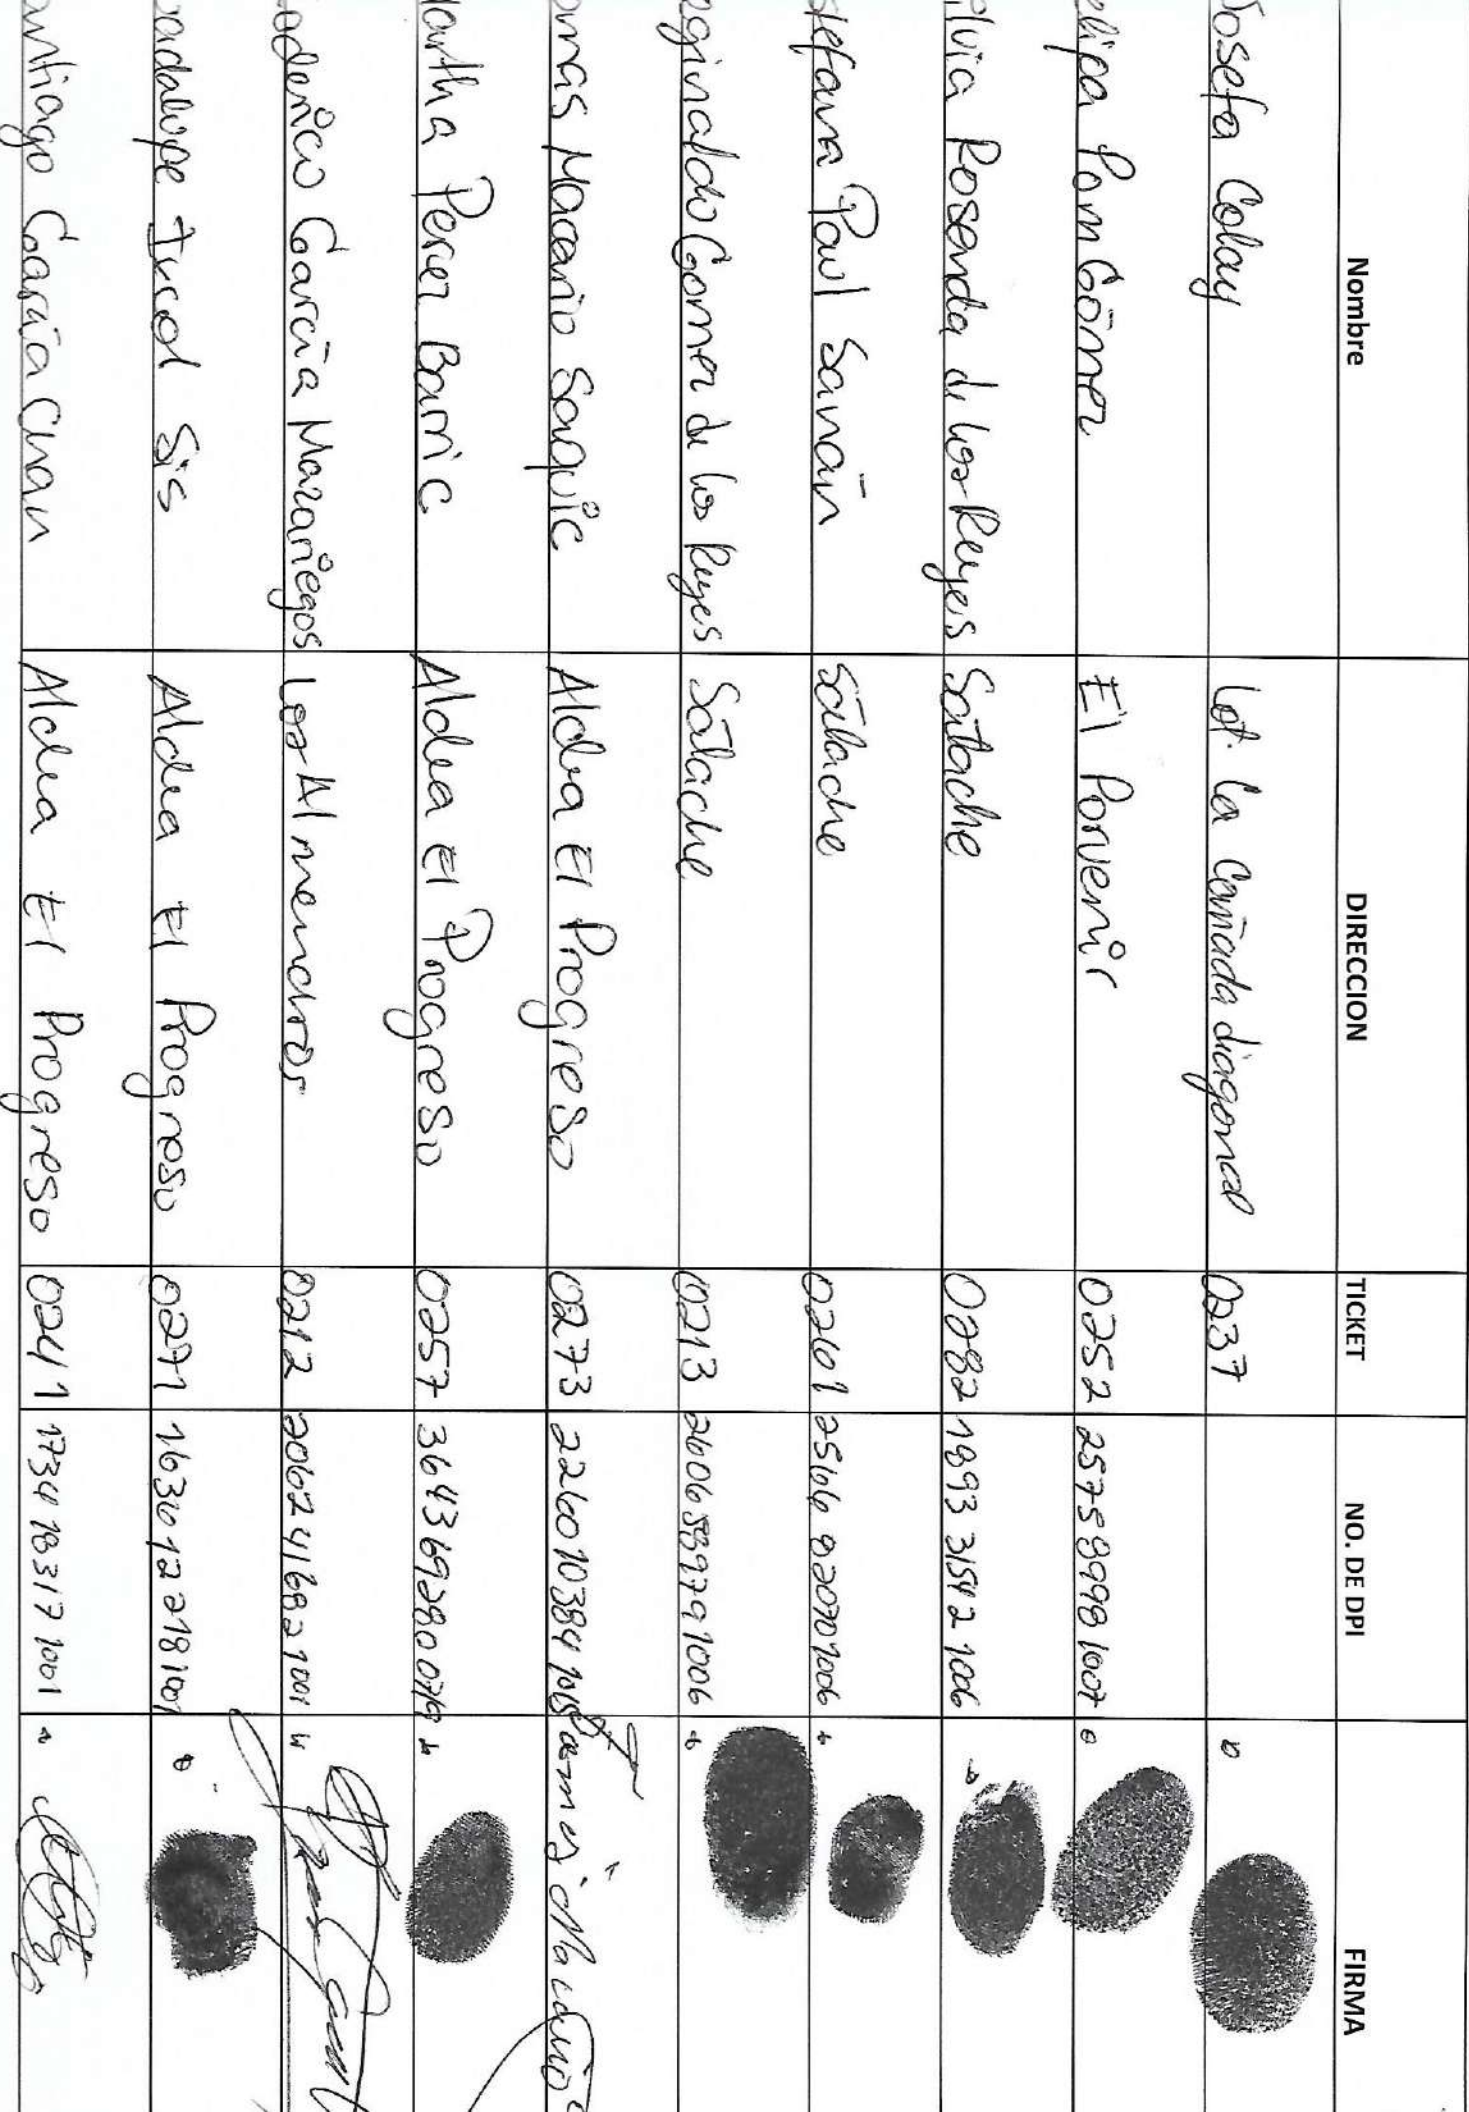 Nombre DIRECCION TICKET NO. DE DPI FIRMA
Josefa Colay Lot. la Cañada diagonal 0237
elipa Pom Gómez El Porvenir 0252 2575 89981007
ilvia Rosenda de los Reyes Salache 0282 1893 31542 1006
tefana Paul Sanán Salache 0261 2566 82070 1006
eginaldo Gomez de los Reyes Salache 0213 2606 58979 1006
omas Macario Saquic Aldea El Progreso 0273 2260 10384
lartha Perez Barric Aldea El Progreso 0257 3643692800719
García Mazariegos Los Almendros 0212 2062 41682 1001
uadalupe Tucol Sis Aldea El Progreso 0271 1630 12218 1001
antiago García Chan Aldea El Progreso 0241 1734 18317 1001